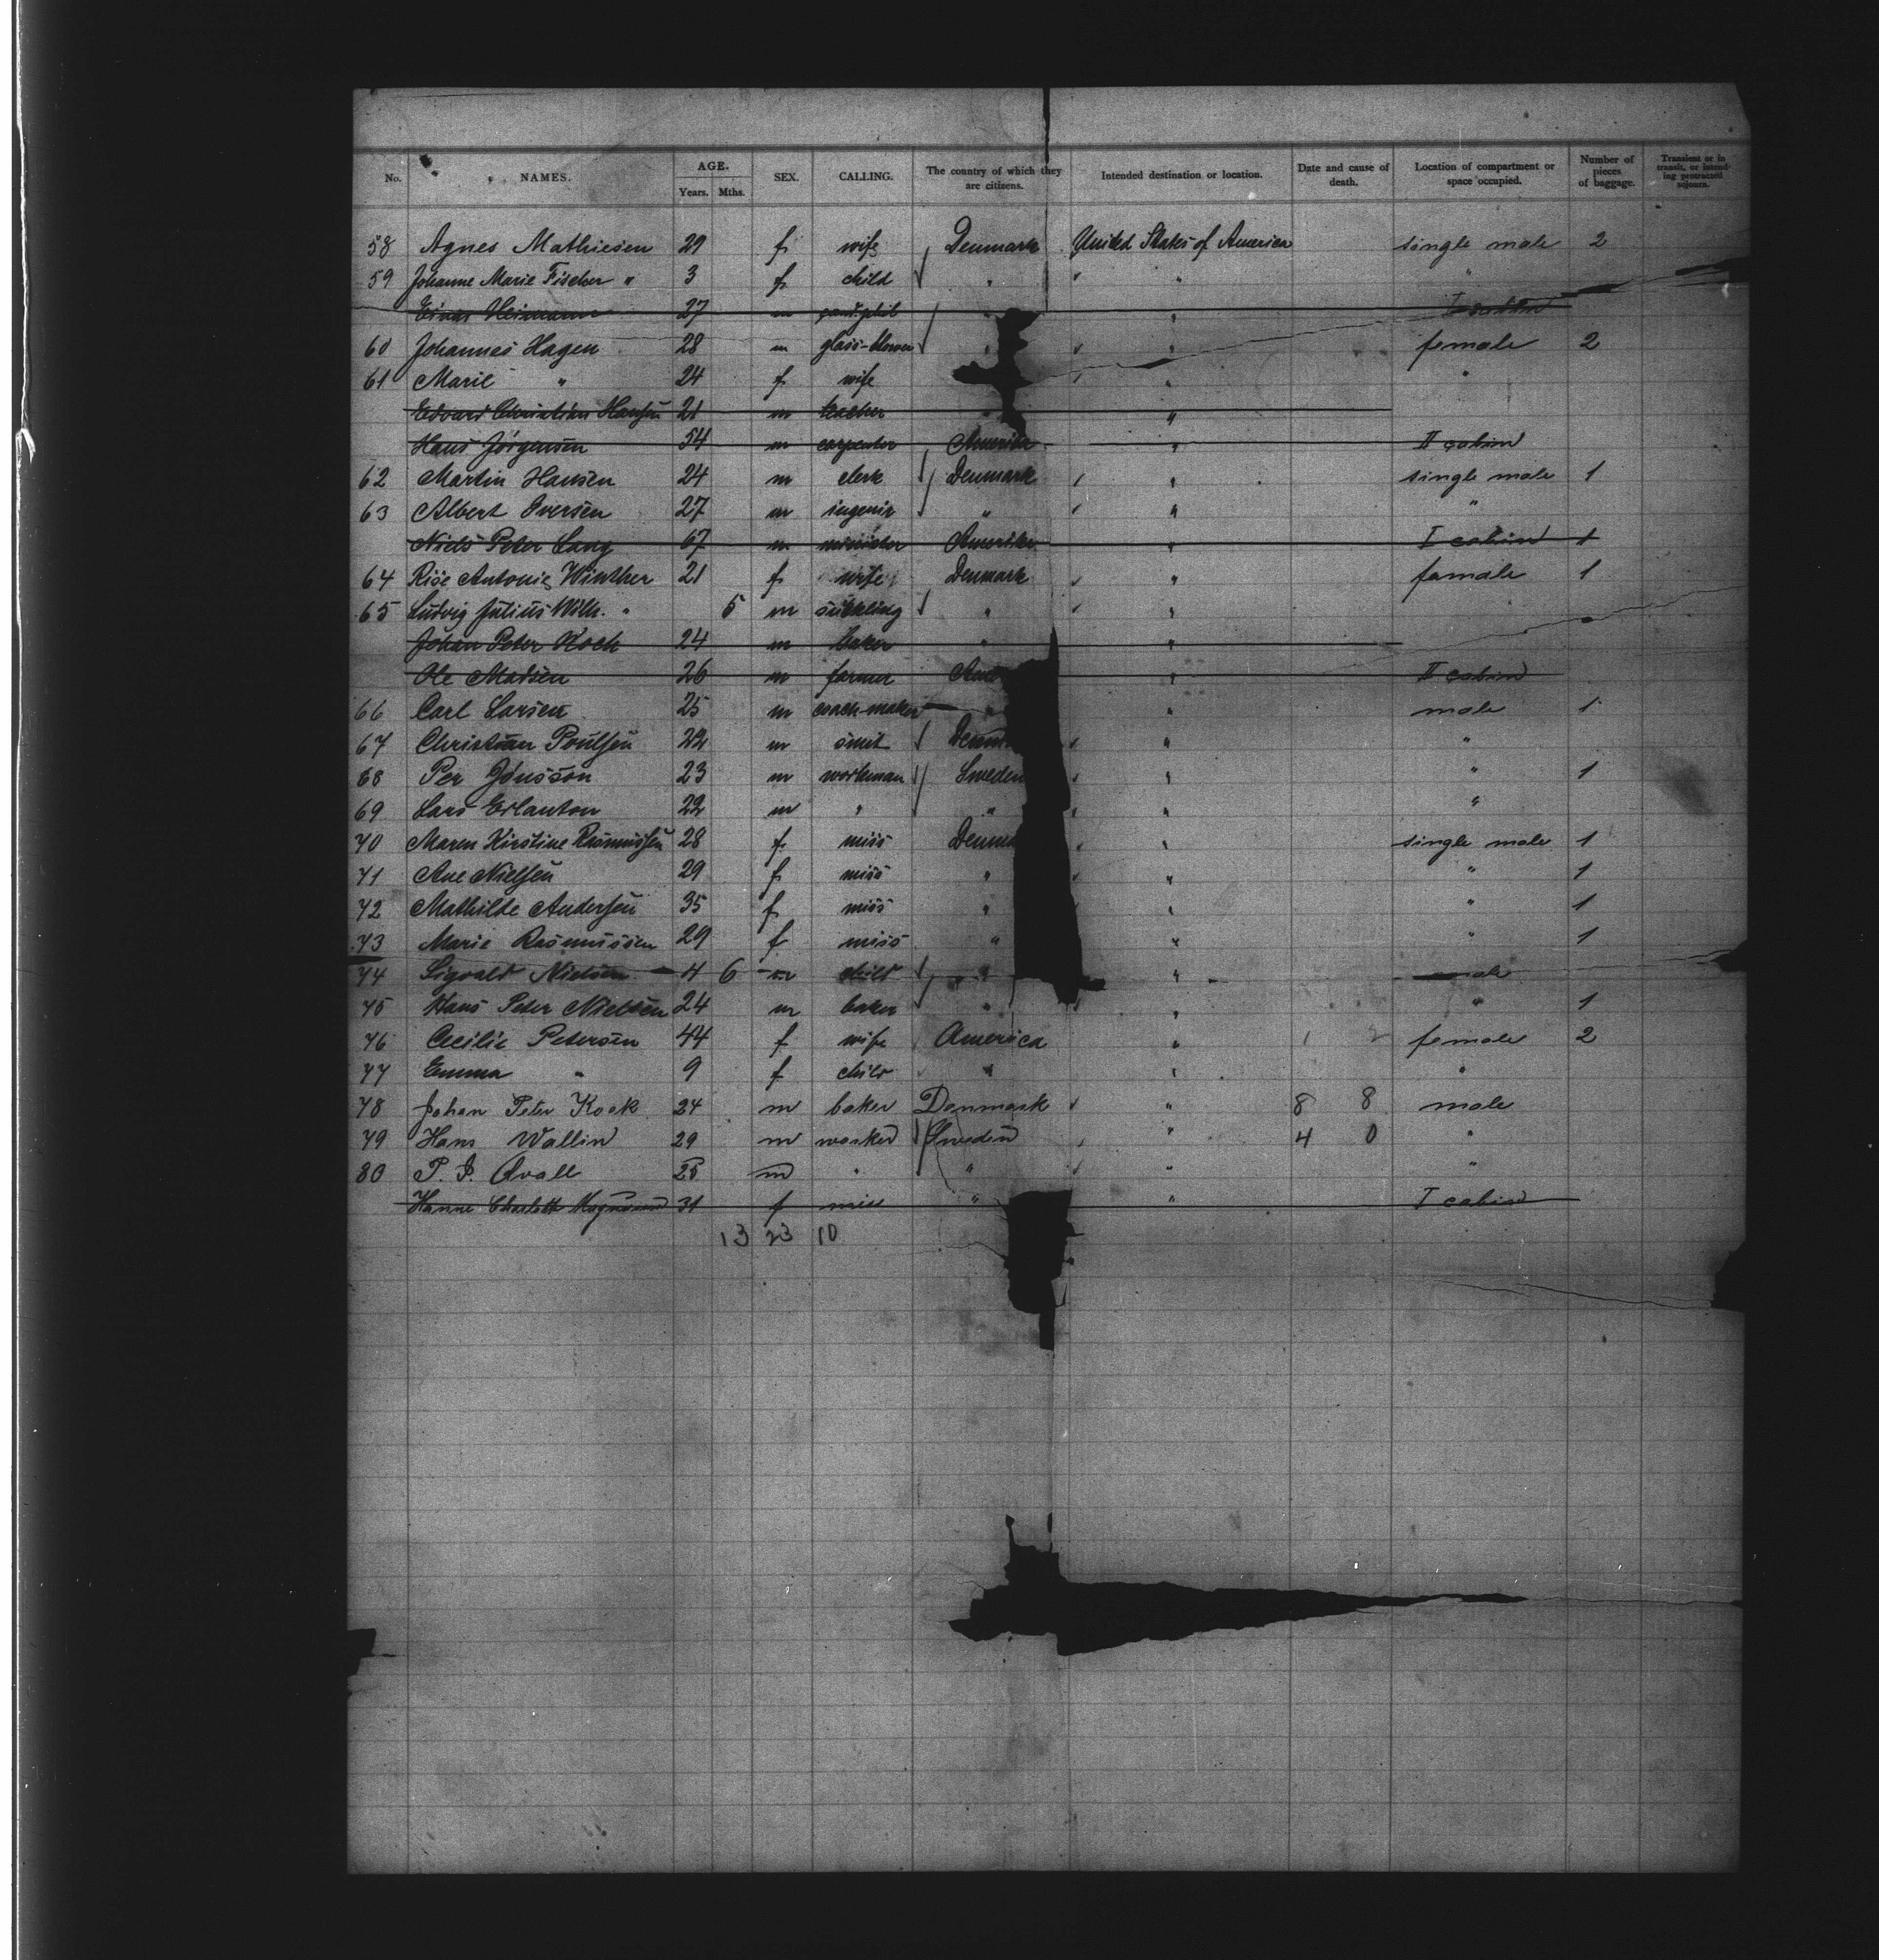 No. NAMES. AGE. Years. Mths. SEX. CALLING. The country of which they are citizens. Intended destination or location. Date and cause of death. Location of compartment or space occupied. Number of pieces of baggage. Transient or in transit, or intending protracted sojourn.
58 Agnes Mathiesen 29 f wife Denmark United States of America single male 2
59 Johanne Marie Fischer " 3 f child " " "
Einar Heimann 27 m cand. phil " " I cabin
60 Johannes Hagen 28 m glass-blower " female 2
61 Marie " 24 f wife " "
Edvard Christian Hansen 21 m teacher " "
Hans Jørgensen 54 m carpenter Amerika " II cabin
62 Martin Hansen 24 m clerk Denmark " single male 1
63 Albert Iversen 27 m ingenir " " "
Niels Peter Lang 67 m minister Amerika " I cabin 1
64 Rise Antonie Winther 21 f wife Denmark " female 1
65 Ludvig Julius Wilh. " 5 m suckling " "
Johan Peter Koch 24 m baker " "
Ole Madsen 26 m farmer Am " II cabin
66 Carl Larsen 25 m coach-maker " " male 1
67 Christian Poulsen 22 m smit Denm " "
68 Per Jönsson 23 m workman Sweden " " 1
69 Lars Erlanton 22 m " " " "
70 Maren Kirstine Rasmussen 28 f miss Denma " single male 1
71 Ane Nielsen 29 f miss " " " 1
72 Mathilde Andersen 35 f miss " " " 1
73 Marie Rasmussen 29 f miss " " " 1
74 Sigvald Nielsen 4 6 m child " " male
75 Hans Peter Nielsen 24 m baker " " " 1
76 Cecilie Petersen 44 f wife America " 1 2 female 2
77 Emma " 9 f child " " "
78 Johan Peter Kock 24 m baker Denmark " 8 8 male
79 Hans Wallin 29 m worker Sweden " 4 0 "
80 P. P. Qvall 25 m " " " "
Hanne Charlott Magnusson 31 f miss " " I cabin
13 23 10